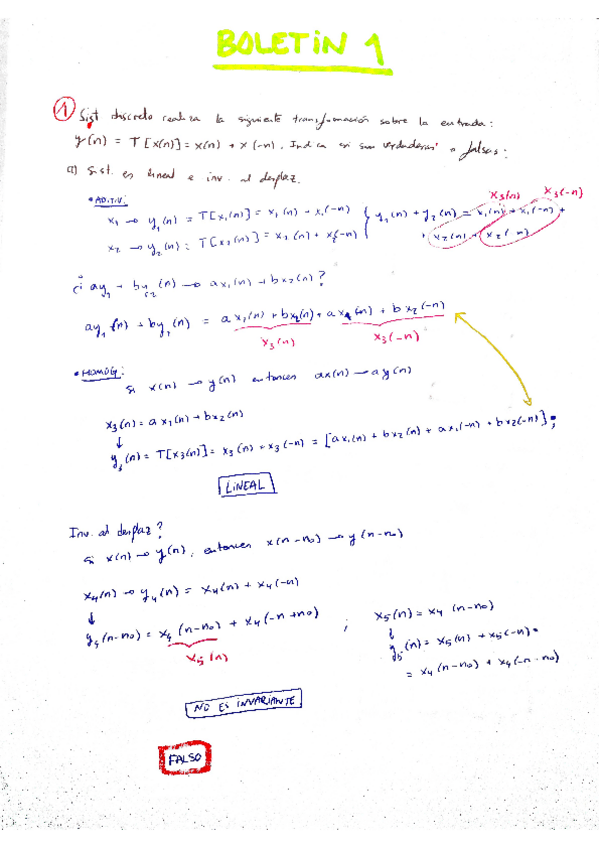 BOLETIN 1
① Sist discreto realiza la siguiente transformación sobre la entrada:
y(n) = T[x(n)] = x(n) + x(-n). Indica si son verdaderas o falsos:
a) Sist. es lineal e inv. al desplaz.
x3(n) x3(-n)
• ADITIV:
x1 → y1(n) = T[x1(n)] = x1(n) + x1(-n)
x2 → y2(n) = T[x2(n)] = x2(n) + x2(-n)
{ y1(n) + y2(n) = x1(n) + x1(-n) +
+ x2(n) + x2(-n)
¿ ay1 + by2(n) → ax1(n) + bx2(n)?
ay1(n) + by1(n) = ax1(n) + bx2(n) + ax1(n) + bx2(-n)
x3(n) x3(-n)
• HOMOG:
si x(n) → y(n) entonces ax(n) → ay(n)
x3(n) = ax1(n) + bx2(n)
↓
y3(n) = T[x3(n)] = x3(n) + x3(-n) = [ax1(n) + bx2(n) + ax1(-n) + bx2(-n)];
LINEAL
Inv. al desplaz?
si x(n) → y(n), entonces x(n-no) → y(n-no)
x4(n) → y4(n) = x4(n) + x4(-n)
↓
y4(n-no) = x4(n-no) + x4(-n+no) ;
x5(n)
x5(n) = x4(n-no)
↓
y5(n) = x5(n) + x5(-n) =
= x4(n-no) + x4(-n-no)
NO ES INVARIANTE
FALSO